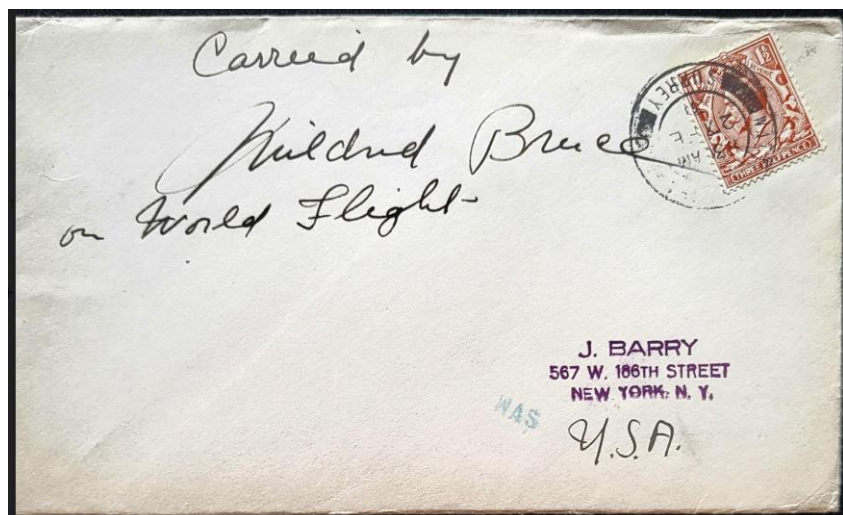 Carried by
Mildred Bruce
on World Flight
1½
SURREY
AM
THREE HALFPENCE
J. BARRY
567 W. 186TH STREET
NEW YORK, N. Y.
WAS
U.S.A.